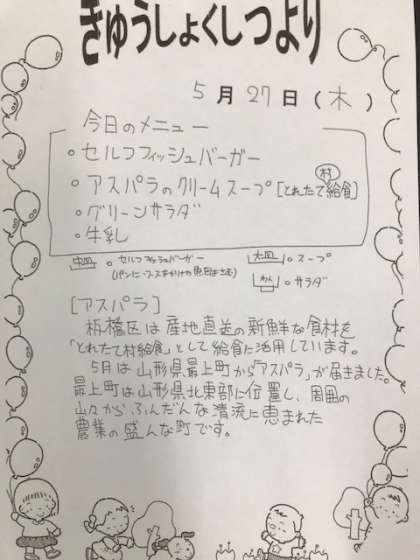 きゅうしょくしつより
5月27日(木)
今日のメニュー
・セルフフィッシュバーガー
・アスパラのクリームスープ[とれたて村給食]
・グリーンサラダ
・牛乳
中皿・セルフフィッシュバーガー
大皿・スープ
(パンにソースをかけた魚をはさむ)
わん・サラダ
[アスパラ]
板橋区は産地直送の新鮮な食材を
「とれたて村給食」として給食に活用しています。
5月は山形県最上町から「アスパラ」が届きました。
最上町は山形県北東部に位置し、周囲の
山々からふんだんな清流に恵まれた
農業の盛んな町です。